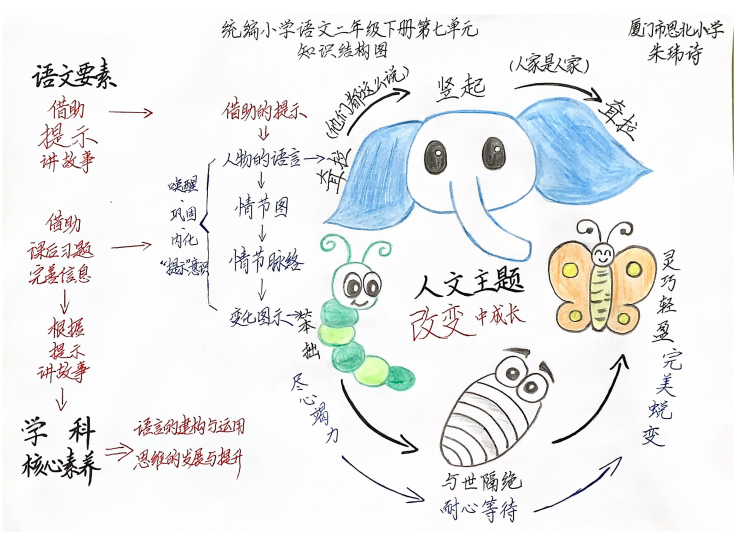 统编小学语文二年级下册第七单元
知识结构图
厦门市思北小学
朱玮诗
语文要素
借助
提示
讲故事
借助
课后习题
完善信息
根据
提示
讲故事
学科
核心素养
语言的建构与运用
思维的发展与提升
唤醒
巩固
内化
“提示”意识
借助的提示
人物的语言
情节图
情节脉络
变化图示
耷拉
(他们都这么说)
竖起
(人家是人家)
耷拉
人文主题
改变中成长
笨拙
尽心竭力
与世隔绝
耐心等待
灵巧轻盈完美蜕变